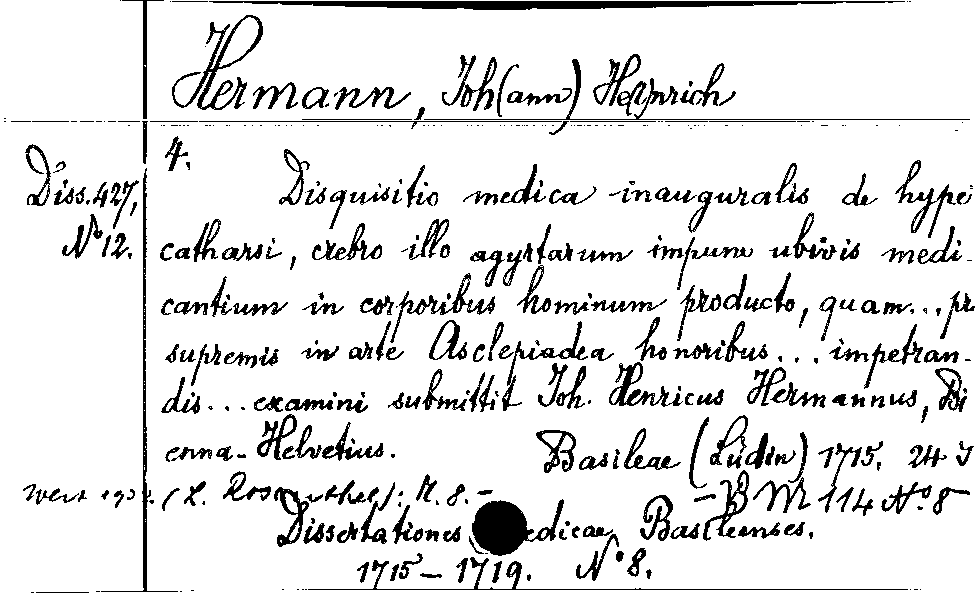 Hermann, Joh(ann) He(i)nrich
4.
Diss. 427,
No 12.
Disquisitio medica inauguralis de hype
catharsi, crebro illo agyrtarum impune ubivis medi-
cantium in corporibus hominum producto, quam... pr
supremis in arte Asclepiadea honoribus... impetran-
dis... examini submittit Joh. Henricus Hermannus, Bi
enna-Helvetius.
Basileae (Lüdin) 1715. 24 S
Wert (L. Rosenthal): M. 8.-
- B M 114 No. 8
Dissertationes medicae Basileenses.
1715-1719. No 8.